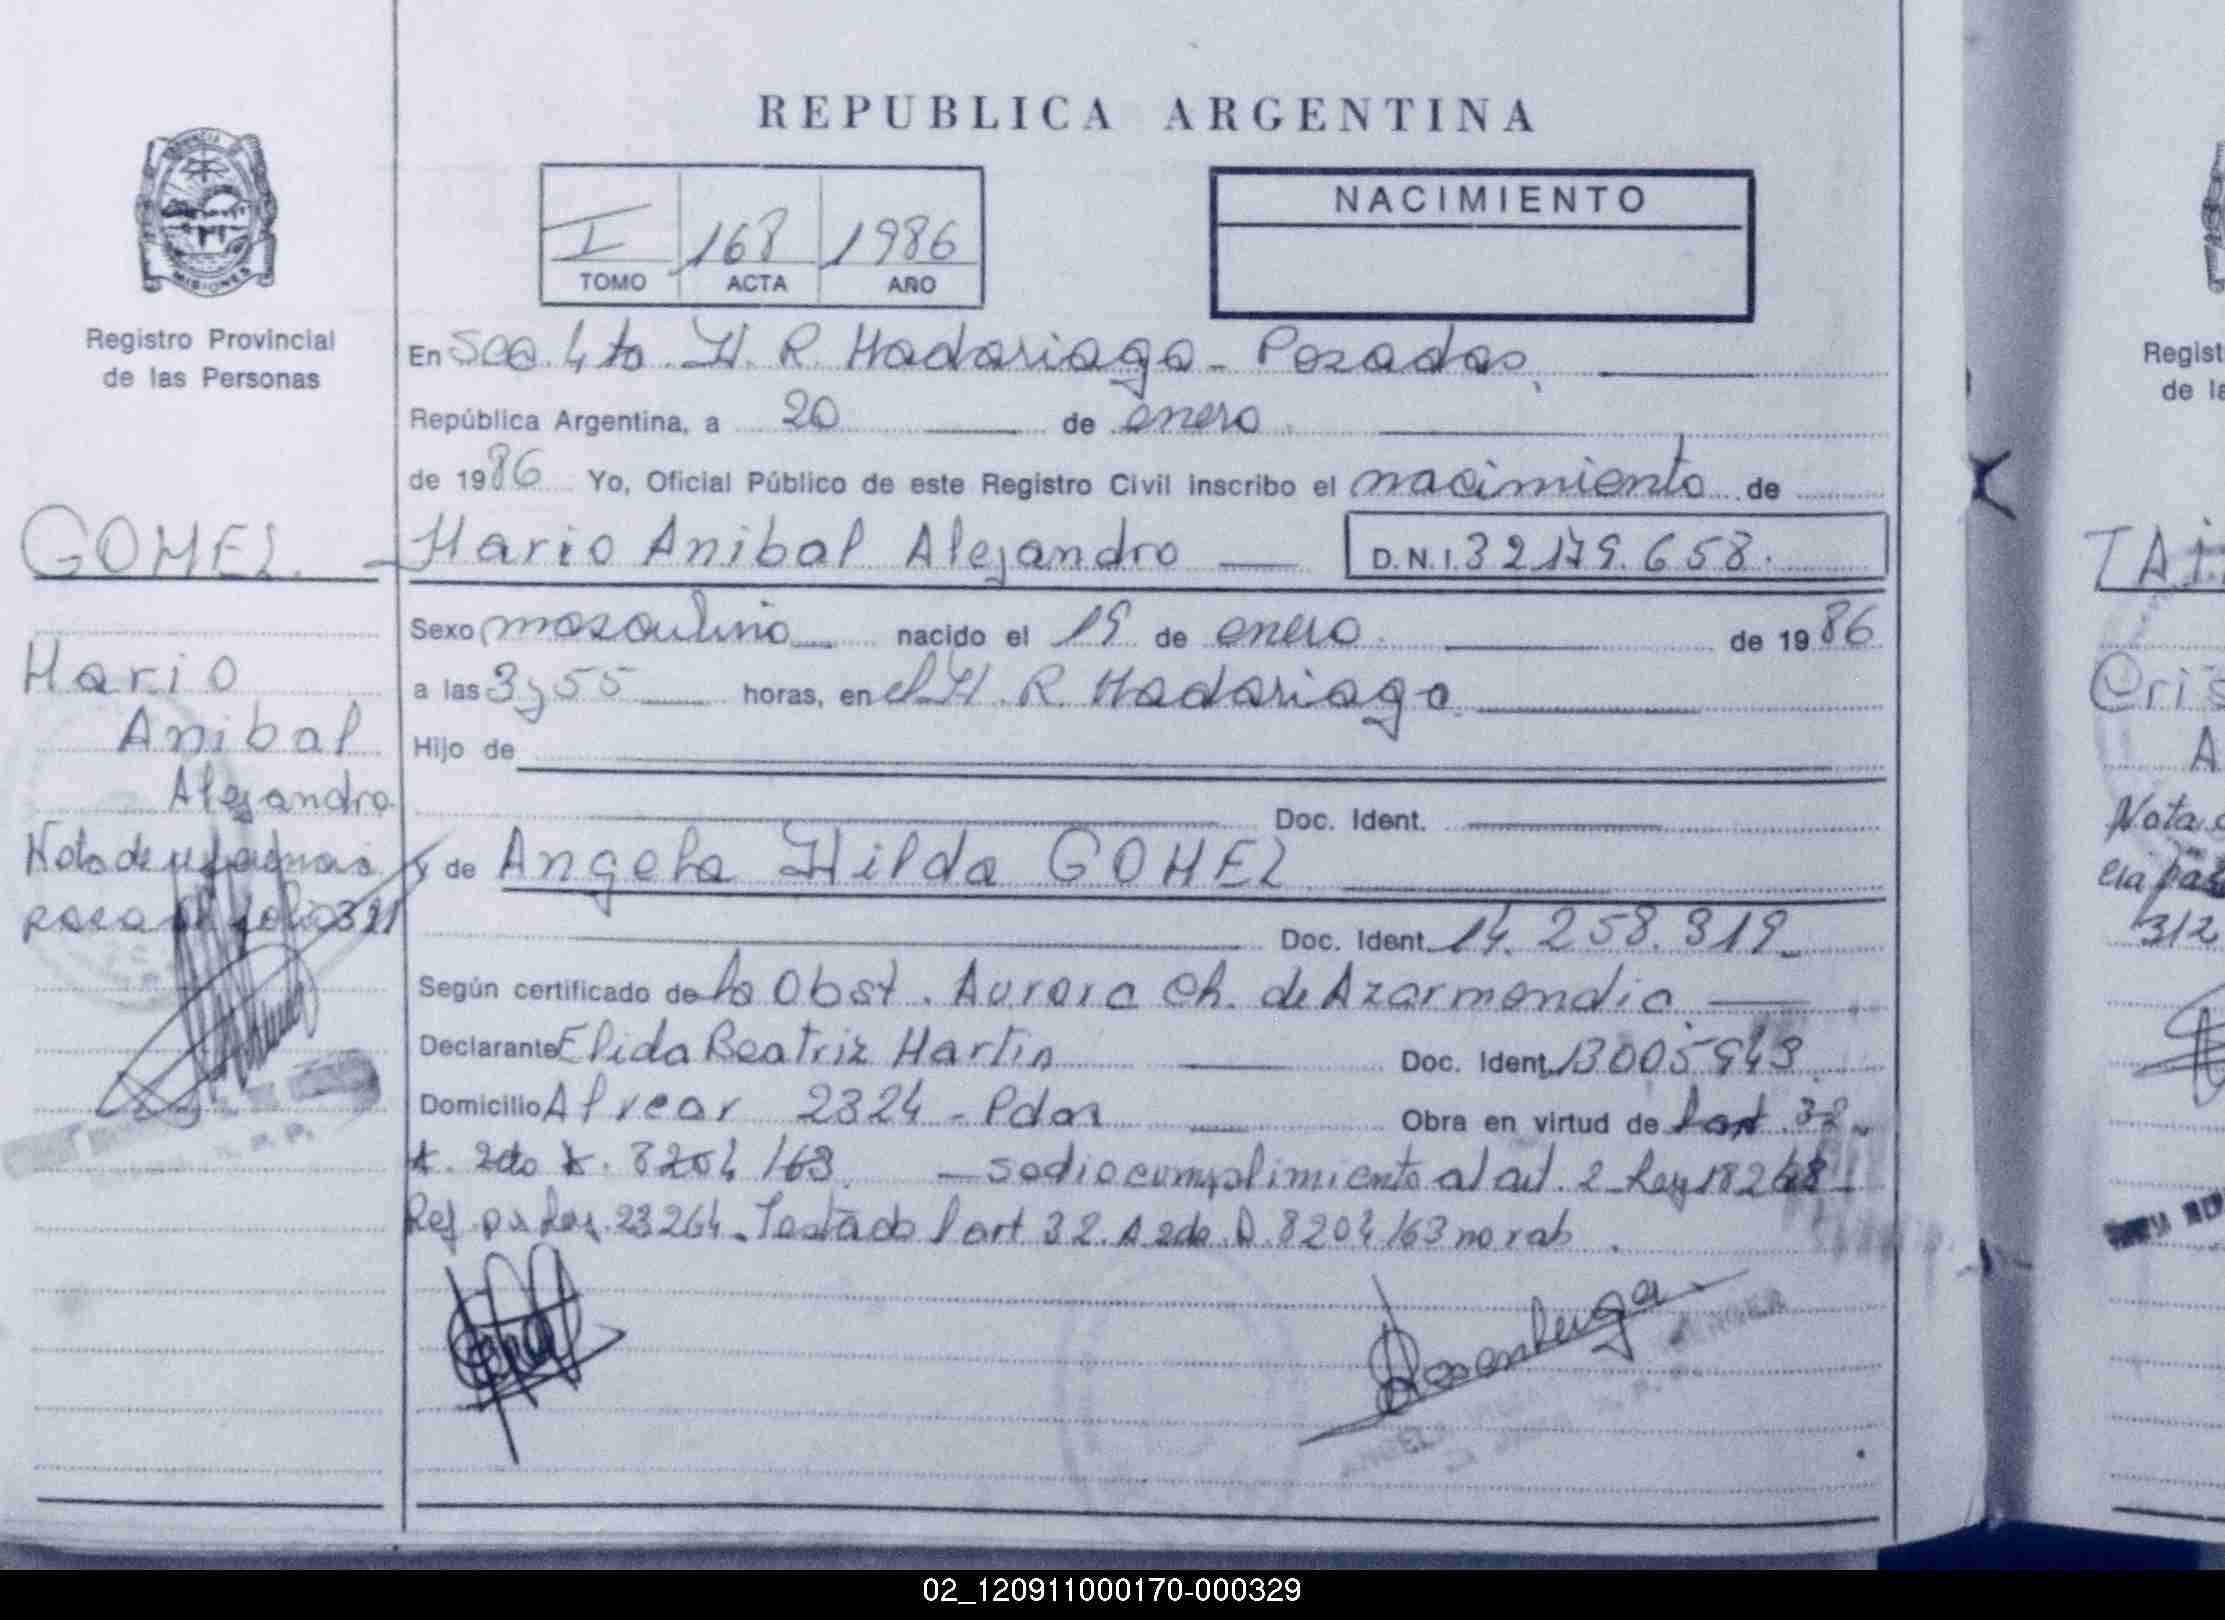 REPUBLICA ARGENTINA
PROVINCIA
MISIONES
Registro Provincial
de las Personas
I 168 1986
TOMO ACTA AÑO
NACIMIENTO
En Sec. 4ta. H. R. Madariaga - Posadas,
República Argentina, a 20 de enero
de 1986 Yo, Oficial Público de este Registro Civil inscribo el nacimiento de
GOMEZ.
Mario Anibal Alejandro D.N.I. 32.179.658.
Sexo masculino nacido el 19 de enero de 1986
a las 3 y 55 horas, en el H. R. Madariaga
Hijo de
Doc. Ident.
y de Angela Hilda GOMEZ
Doc. Ident. 14.258.919
Según certificado de la Obst. Aurora Ch. de Azarmendia
Declarante Elida Beatriz Martin Doc. Ident. 13005943
Domicilio Alvear 2324 - Pdas Obra en virtud de l art 32
A. 2do D. 8204/63. - se dio cumplimiento al art. 2 Ley 18248
Ref. por Ley 23264. Testado l art 32 A 2do D. 8204/63 no vale
Mario
Anibal
Alejandro
Nota de referencia
pasa al folio 321
Regist
de la
Cris
A
Nota
cia pas
312
02_120911000170-000329